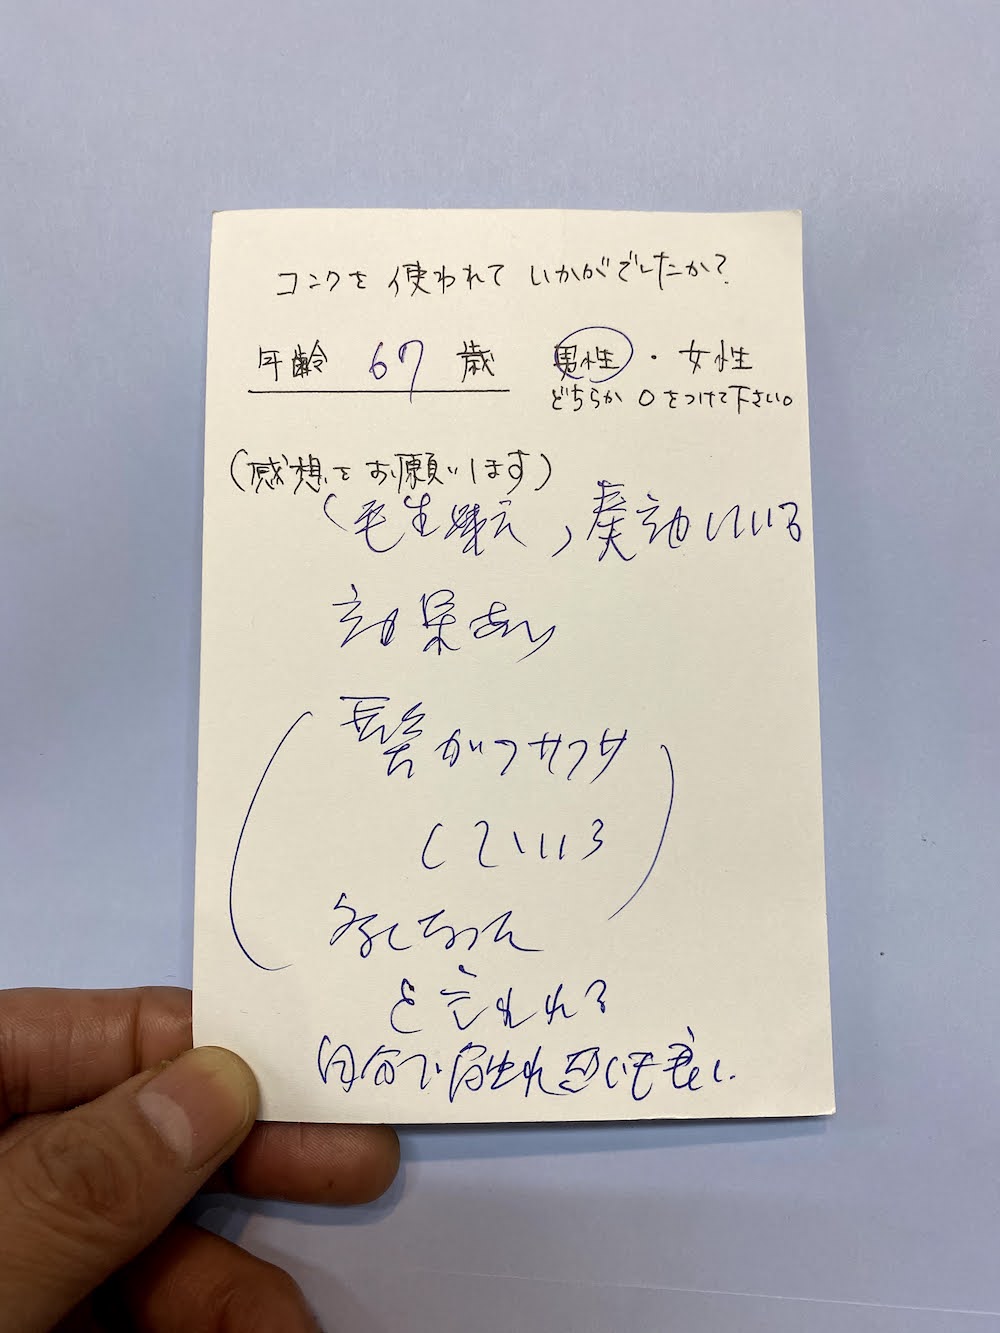 コンクを使われていかがでしたか?
年齢 67 歳 男性・女性
どちらか○をつけて下さい。
(感想をお願いします)
(毛生え),奏効している
効果あり
(髪がフサフサ
している)
なった
と言われる
自分で触れ も良い.